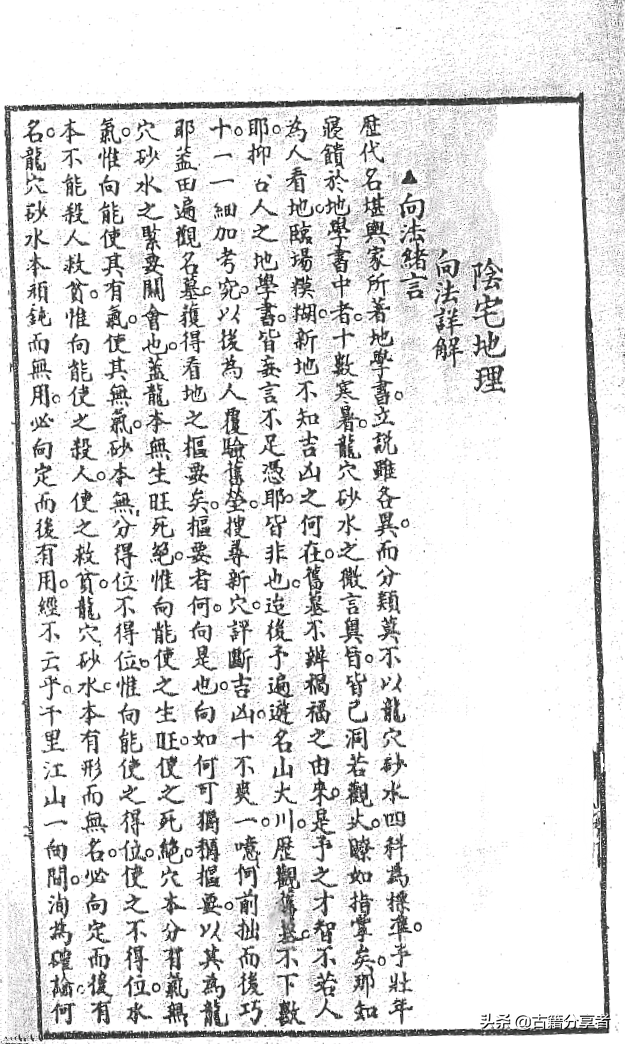 陰宅地理
向法詳解
▲向法緒言
歷代名堪輿家所著地學書。立說雖各異。而分類莫不以龍穴砂水四科為標準。予壯年
寢饋於地學書中者。十數寒暑。龍穴砂水之微言奧旨。皆已洞若觀火。瞭如指掌矣。那知
為人看地。臨場模糊。新地不知吉凶之何在。舊墓不辨禍福之由來。是予之才智不若人
耶。抑公人之地學書皆妄言不足憑耶。皆非也。迨後予遍遊名山大川。歷觀舊墓。不下數
十。一一細加考究。以後為人覆驗舊塋。搜尋新穴。詳斷吉凶。十不爽一。噫。何前拙而後巧
耶。蓋因遍觀名墓。獲得看地之樞要矣。樞要者何。向是也。向如何可獨稱樞要。以其為龍
穴砂水之緊要關會也。蓋龍本無生旺死絕。惟向能使之生旺。使之死絕。穴本分有氣無
氣。惟向能使其有氣。使其無氣。砂本無分得位不得位。惟向能使之得位。使之不得位。水
本不能殺人救貧。惟向能使之殺人。使之救貧。龍穴砂水本有形而無名。必向定而後有
名。龍穴砂水本頑鈍而無用。必向定而後有用。經不云乎。千里江山一向間。洵為確論。何
头条@古籍分享者